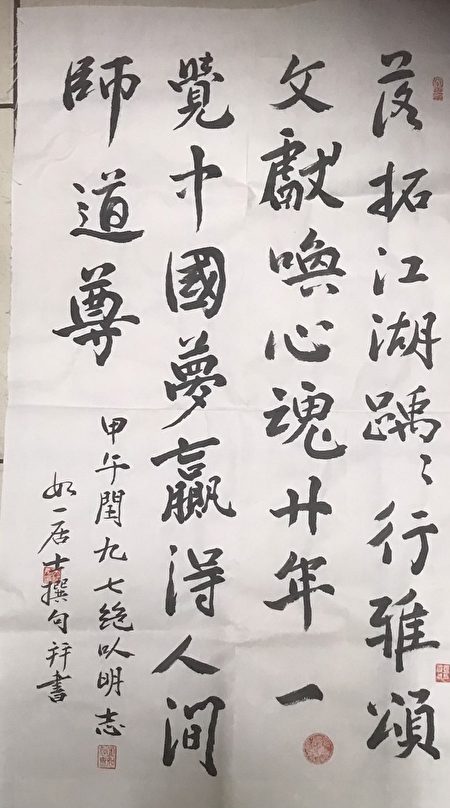 落拓江湖踽〻行雅頌
文獻喚心魂廿年一
覺中國夢贏得人间
師道尊
甲午閏九七絕以明志
如一居士撰句拜書